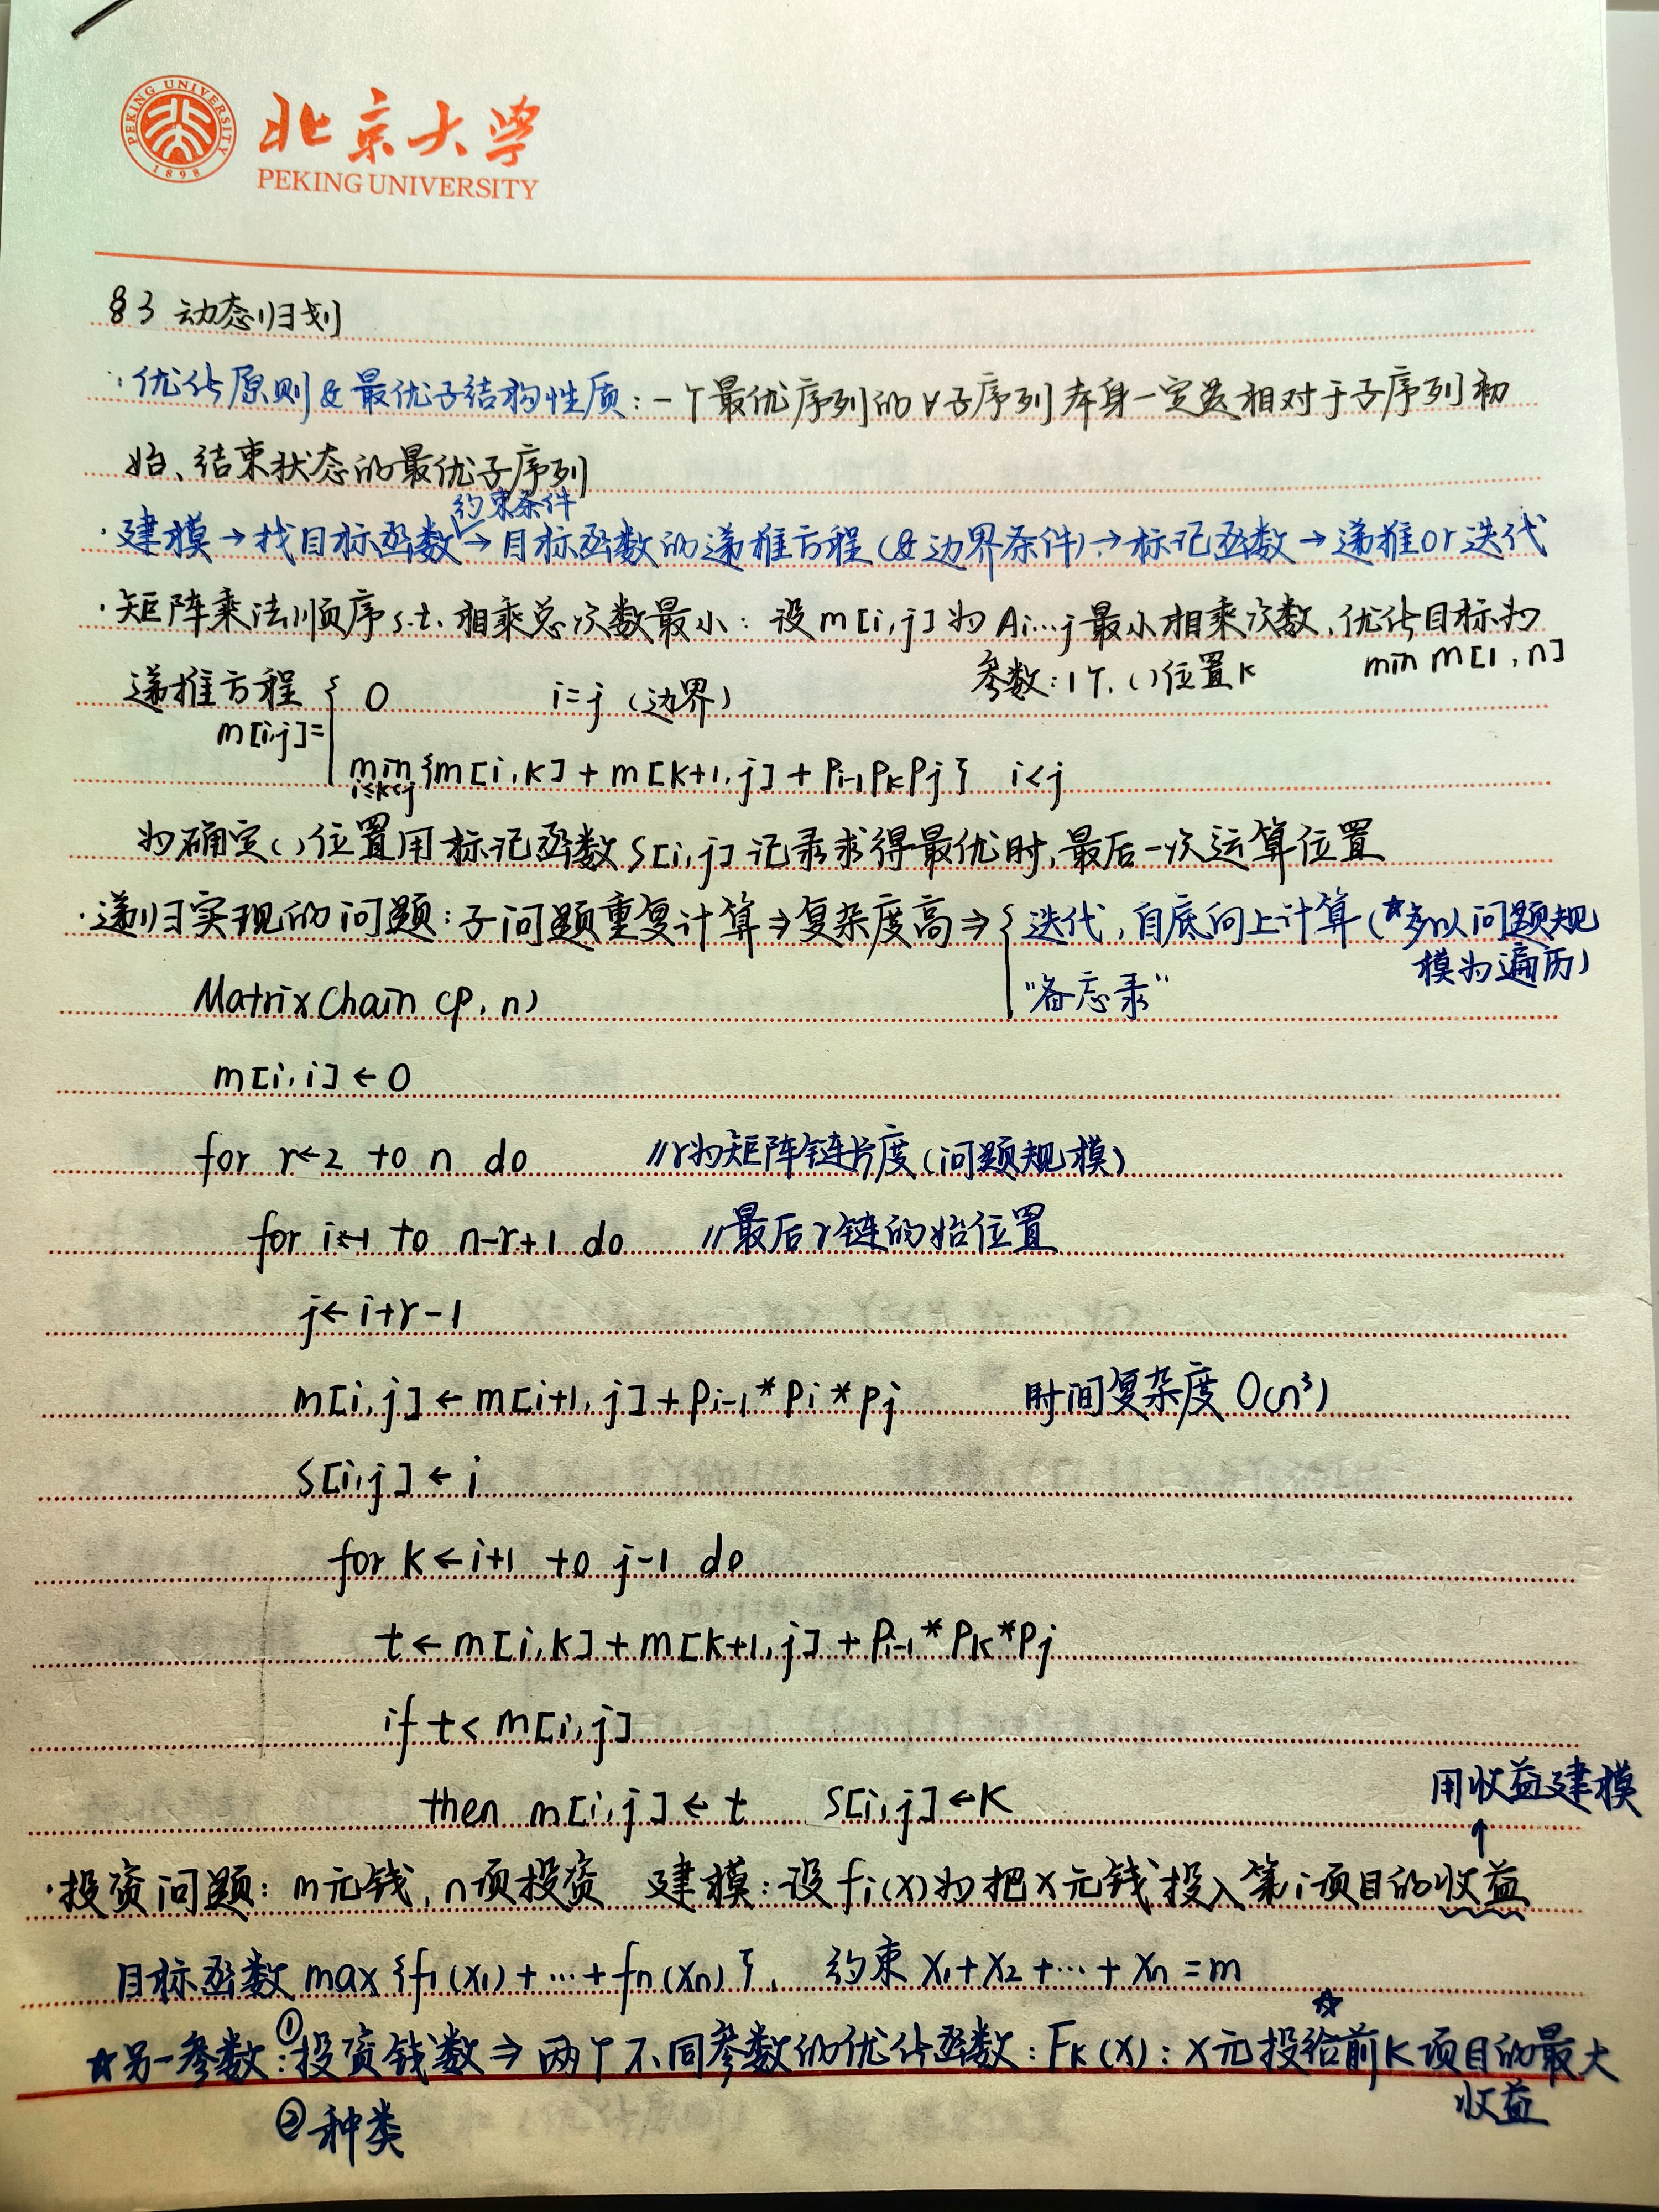 PEKING UNIVERSITY
1898
北京大学
PEKING UNIVERSITY
§3 动态归划
·优化原则&最优子结构性质:一个最优序列的∀子序列本身一定是相对于子序列初
始、结束状态的最优子序列
约束条件
·建模→找目标函数→目标函数的递推方程(&边界条件)→标记函数→递推or迭代
·矩阵乘法顺序s.t.相乘总次数最小:设m[i,j]为Ai…j最小相乘次数,优化目标为
min m[1,n]
参数:1个,()位置k
递推方程 { 0 i=j (边界)
m[i,j]=
min{m[i,k]+m[k+1,j]+Pi-1PkPj} i<j
i≤k<j
为确定()位置用标记函数S[i,j]记录求得最优时,最后一次运算位置
·递归实现的问题:子问题重复计算⇒复杂度高⇒{迭代,自底向上计算(☆多以问题规
模为遍历)
"备忘录"
MatrixChain(P,n)
m[i,i]←0
for r←2 to n do //r为矩阵链长度(问题规模)
for i←1 to n-r+1 do //最后r链的始位置
j←i+r-1
m[i,j]←m[i+1,j]+Pi-1*Pi*Pj 时间复杂度O(n³)
S[i,j]←i
for k←i+1 to j-1 do
t←m[i,k]+m[k+1,j]+Pi-1*Pk*Pj
if t<m[i,j]
then m[i,j]←t S[i,j]←k
用收益建模
↑
·投资问题:m元钱,n项投资 建模:设fi(x)为把x元钱投入第i项目的收益
目标函数max{f1(x1)+…+fn(xn)}, 约束x1+x2+…+xn=m
☆另一参数:①投资钱数⇒两个不同参数的优化函数:Fk(x):x元投给☆前k项目的最大
收益
②种类